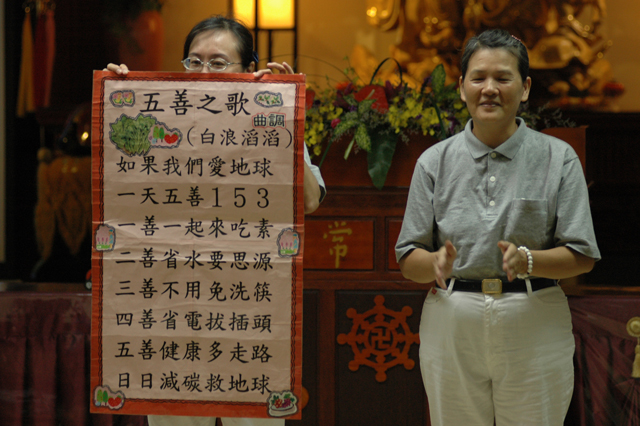 五善之歌
曲調
(白浪滔滔)
如果我們愛地球
一天五善153
一善一起來吃素
二善省水要思源
三善不用免洗筷
四善省電拔插頭
五善健康多走路
日日減碳救地球
常